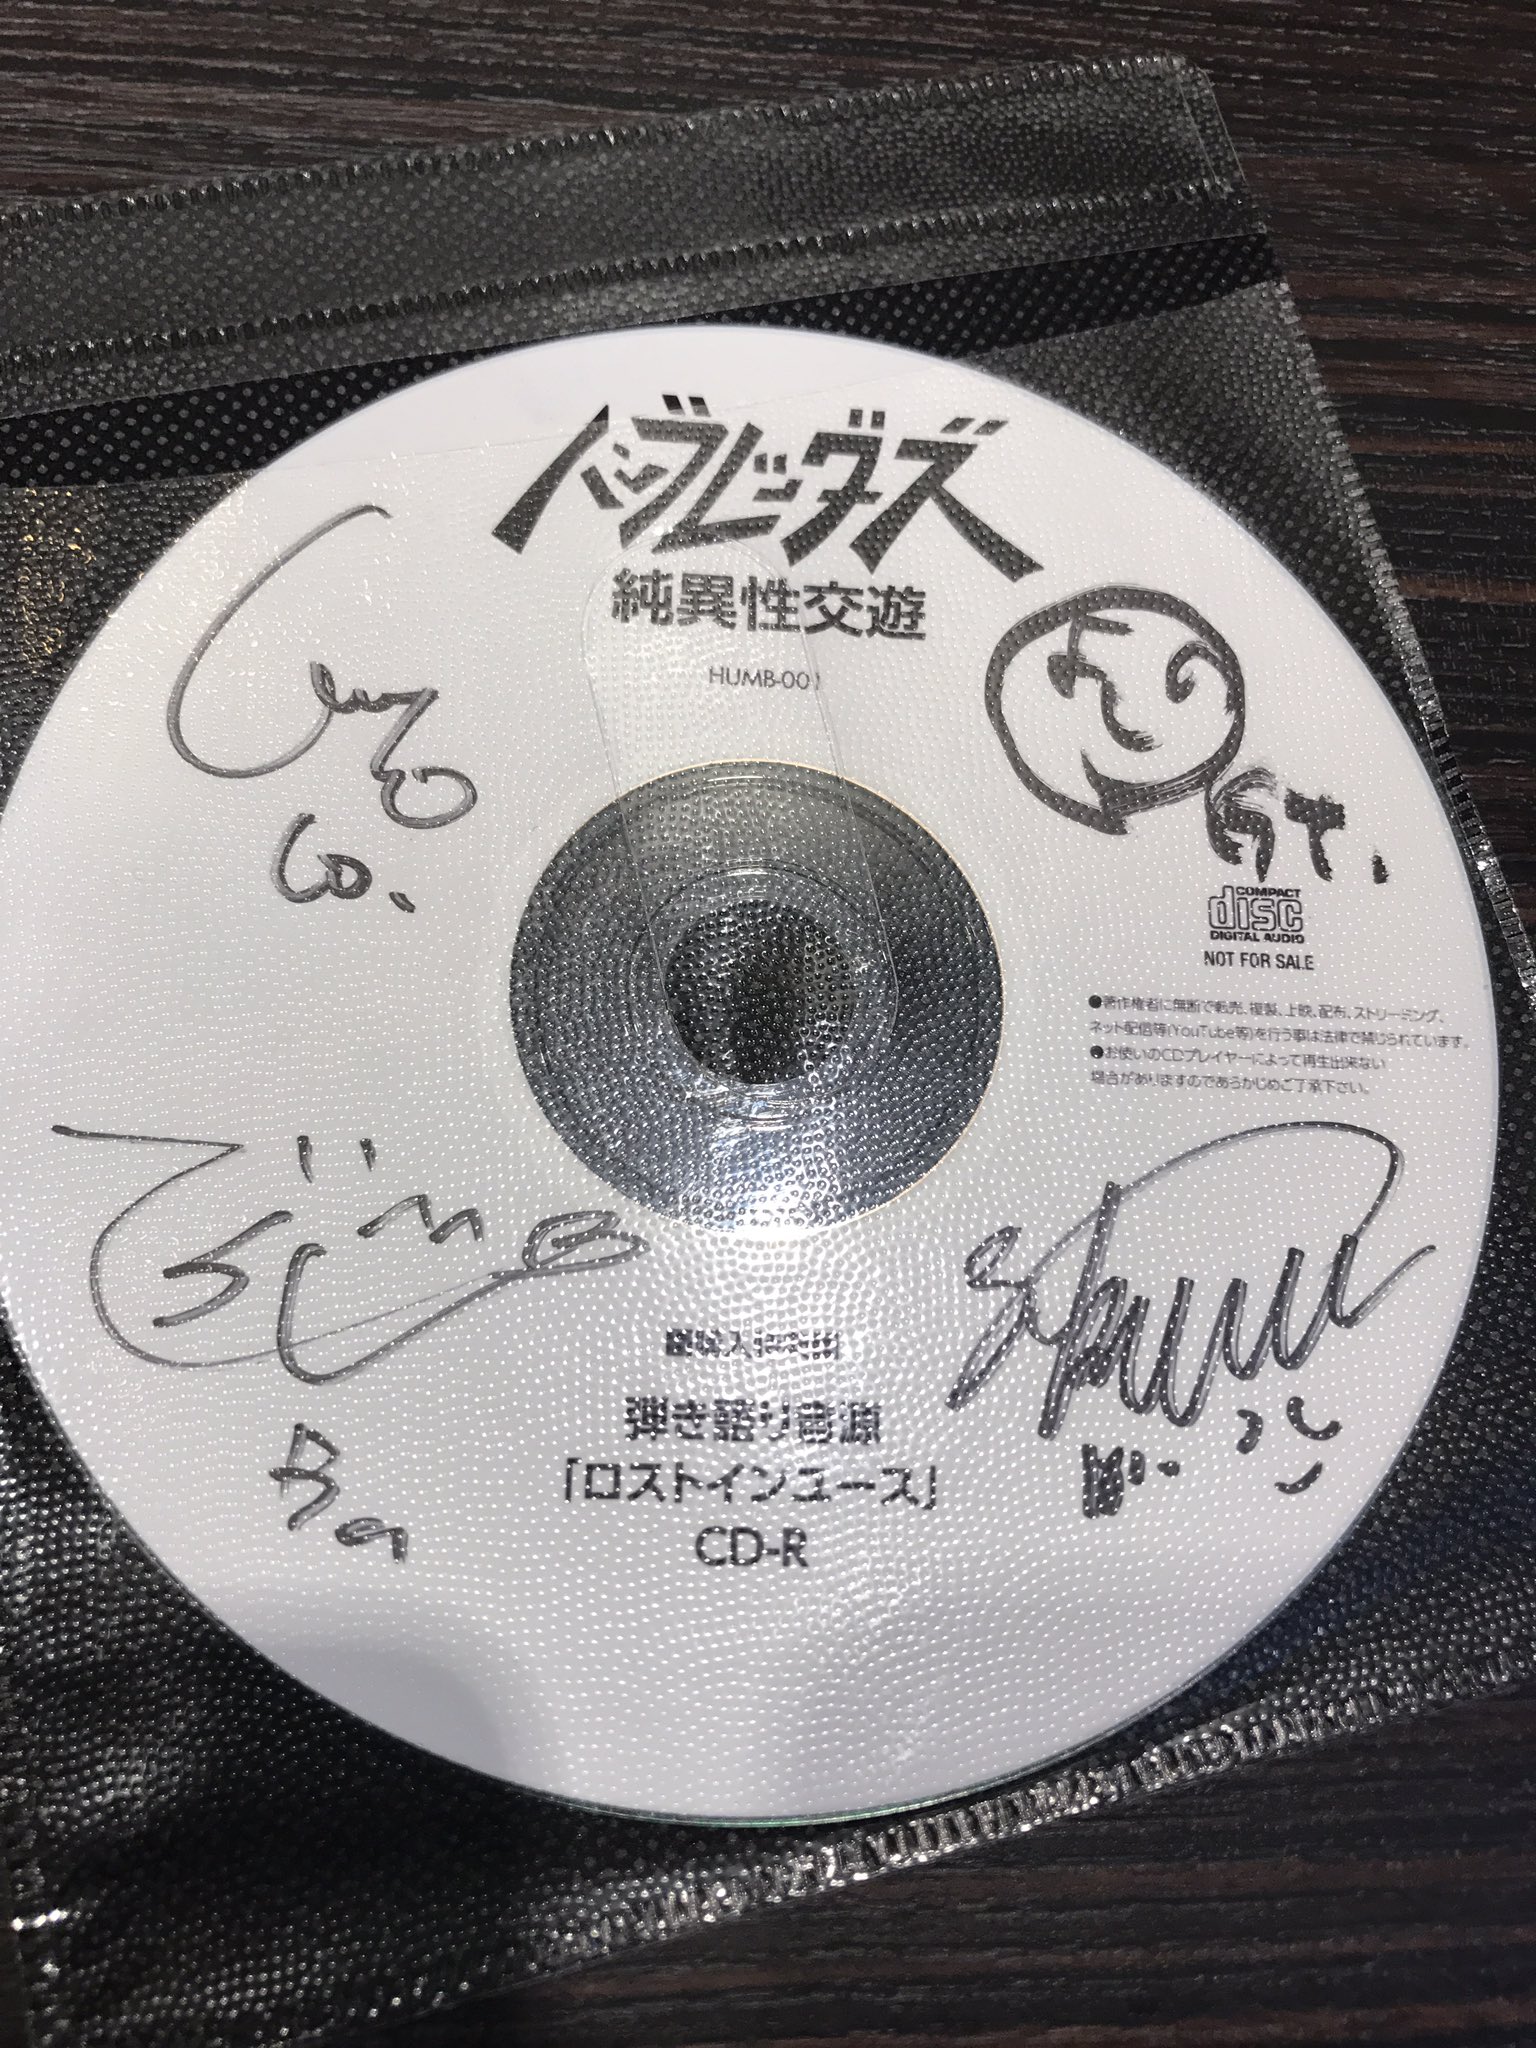 ハンブレッダーズ
純異性交遊
HUMB-001
Co.
Gt.
COMPACT
disc
DIGITAL AUDIO
NOT FOR SALE
●著作権者に無断で転売、複製、上映、配布、ストリーミング、
ネット配信等(YouTube等)を行う事は法律で禁じられています。
●お使いのCDプレイヤーによって再生出来ない
場合がありますのであらかじめご了承下さい。
Ba
弾き語り音源
「ロストインユース」
CD-R